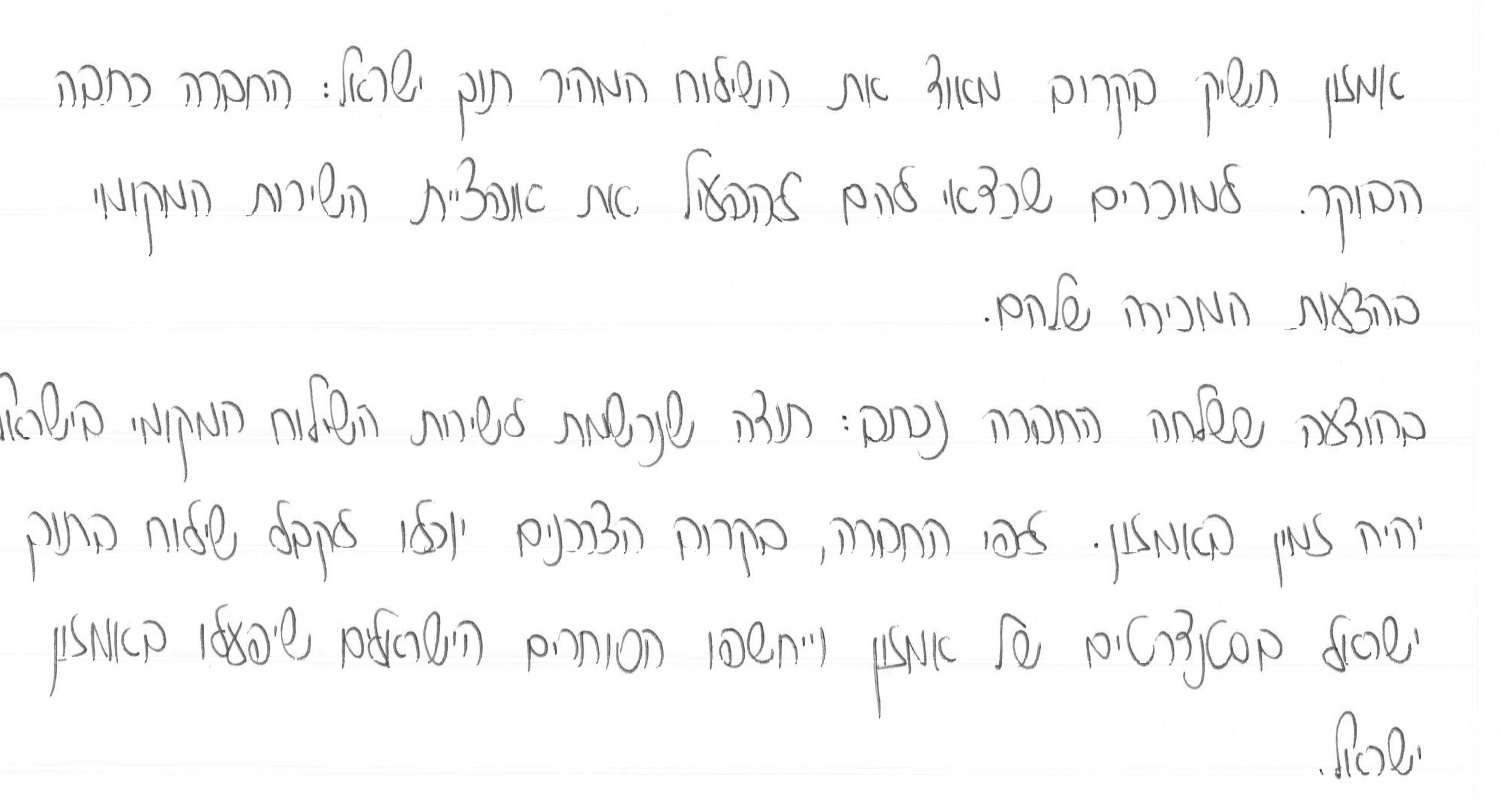 אמזון תשיק בקרוב מאוד את השילוח המהיר תוך ישראל: החברה כתבה
הבוקר. למוכרים שכדאי להם להפעיל את אופציית השירות המקומי
בהצעות המכירה שלהם.
בהודעה ששלחה החברה נכתב: תודה שנרשמת לשירות השילוח המקומי בישראל
יהיה זמין באמזון. לפי החברה, בקרוב הצרכנים יוכלו לקבל שילוח בתוך
ישראל בסטנדרטים של אמזון וייחשפו הסוחרים הישראלים שיפעלו באמזון
ישראל.